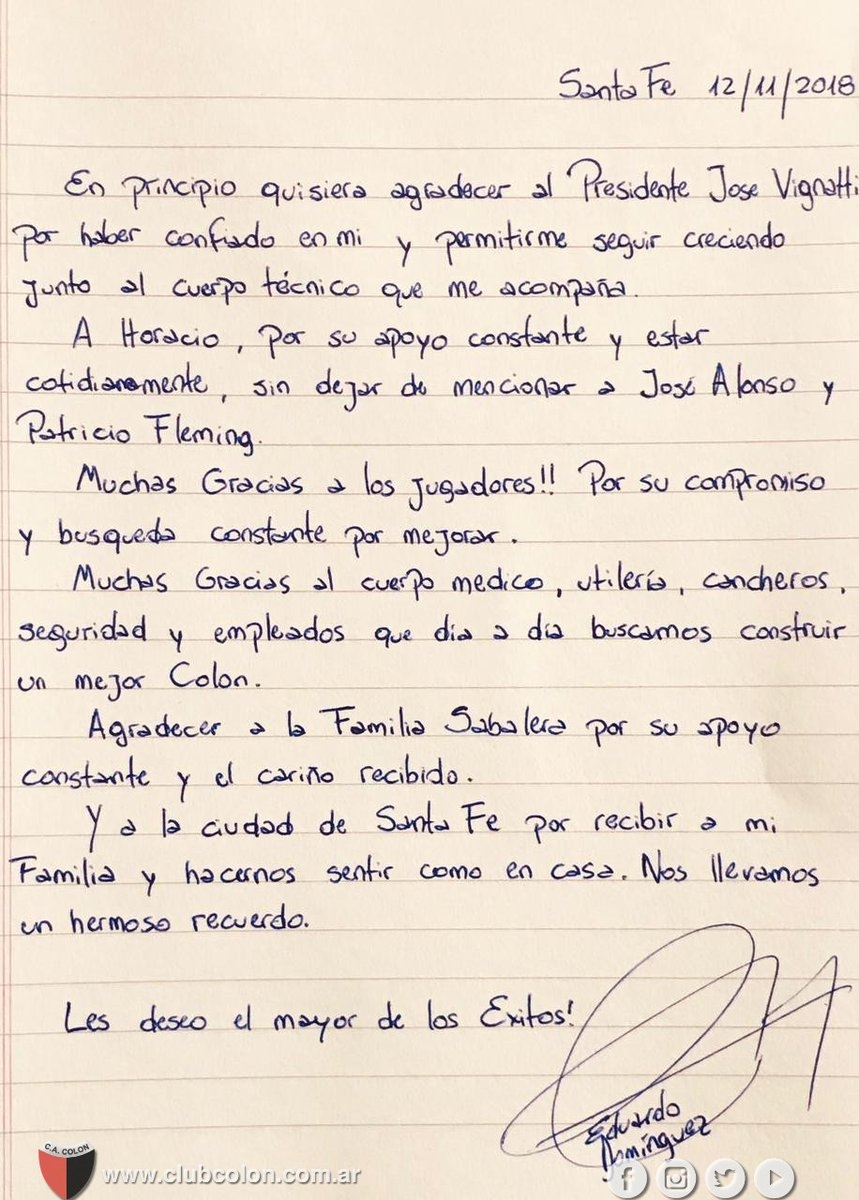 Santa Fe 12/11/2018
En principio quisiera agradecer al Presidente Jose Vignatti
por haber confiado en mi y permitirme seguir creciendo
junto al cuerpo técnico que me acompaña.
A Horacio, por su apoyo constante y estar
cotidianamente, sin dejar de mencionar a José Alonso y
Patricio Fleming.
Muchas Gracias a los jugadores!! Por su compromiso
y busqueda constante por mejorar.
Muchas Gracias al cuerpo medico, utilería, cancheros,
seguridad y empleados que día a día buscamos construir
un mejor Colon.
Agradecer a la Familia Sabalera por su apoyo
constante y el cariño recibido.
Y a la ciudad de Santa Fe por recibir a mi
Familia y hacernos sentir como en casa. Nos llevamos
un hermoso recuerdo.
Les deseo el mayor de los Exitos!
Eduardo
Domínguez
C.A. COLON
www.clubcolon.com.ar